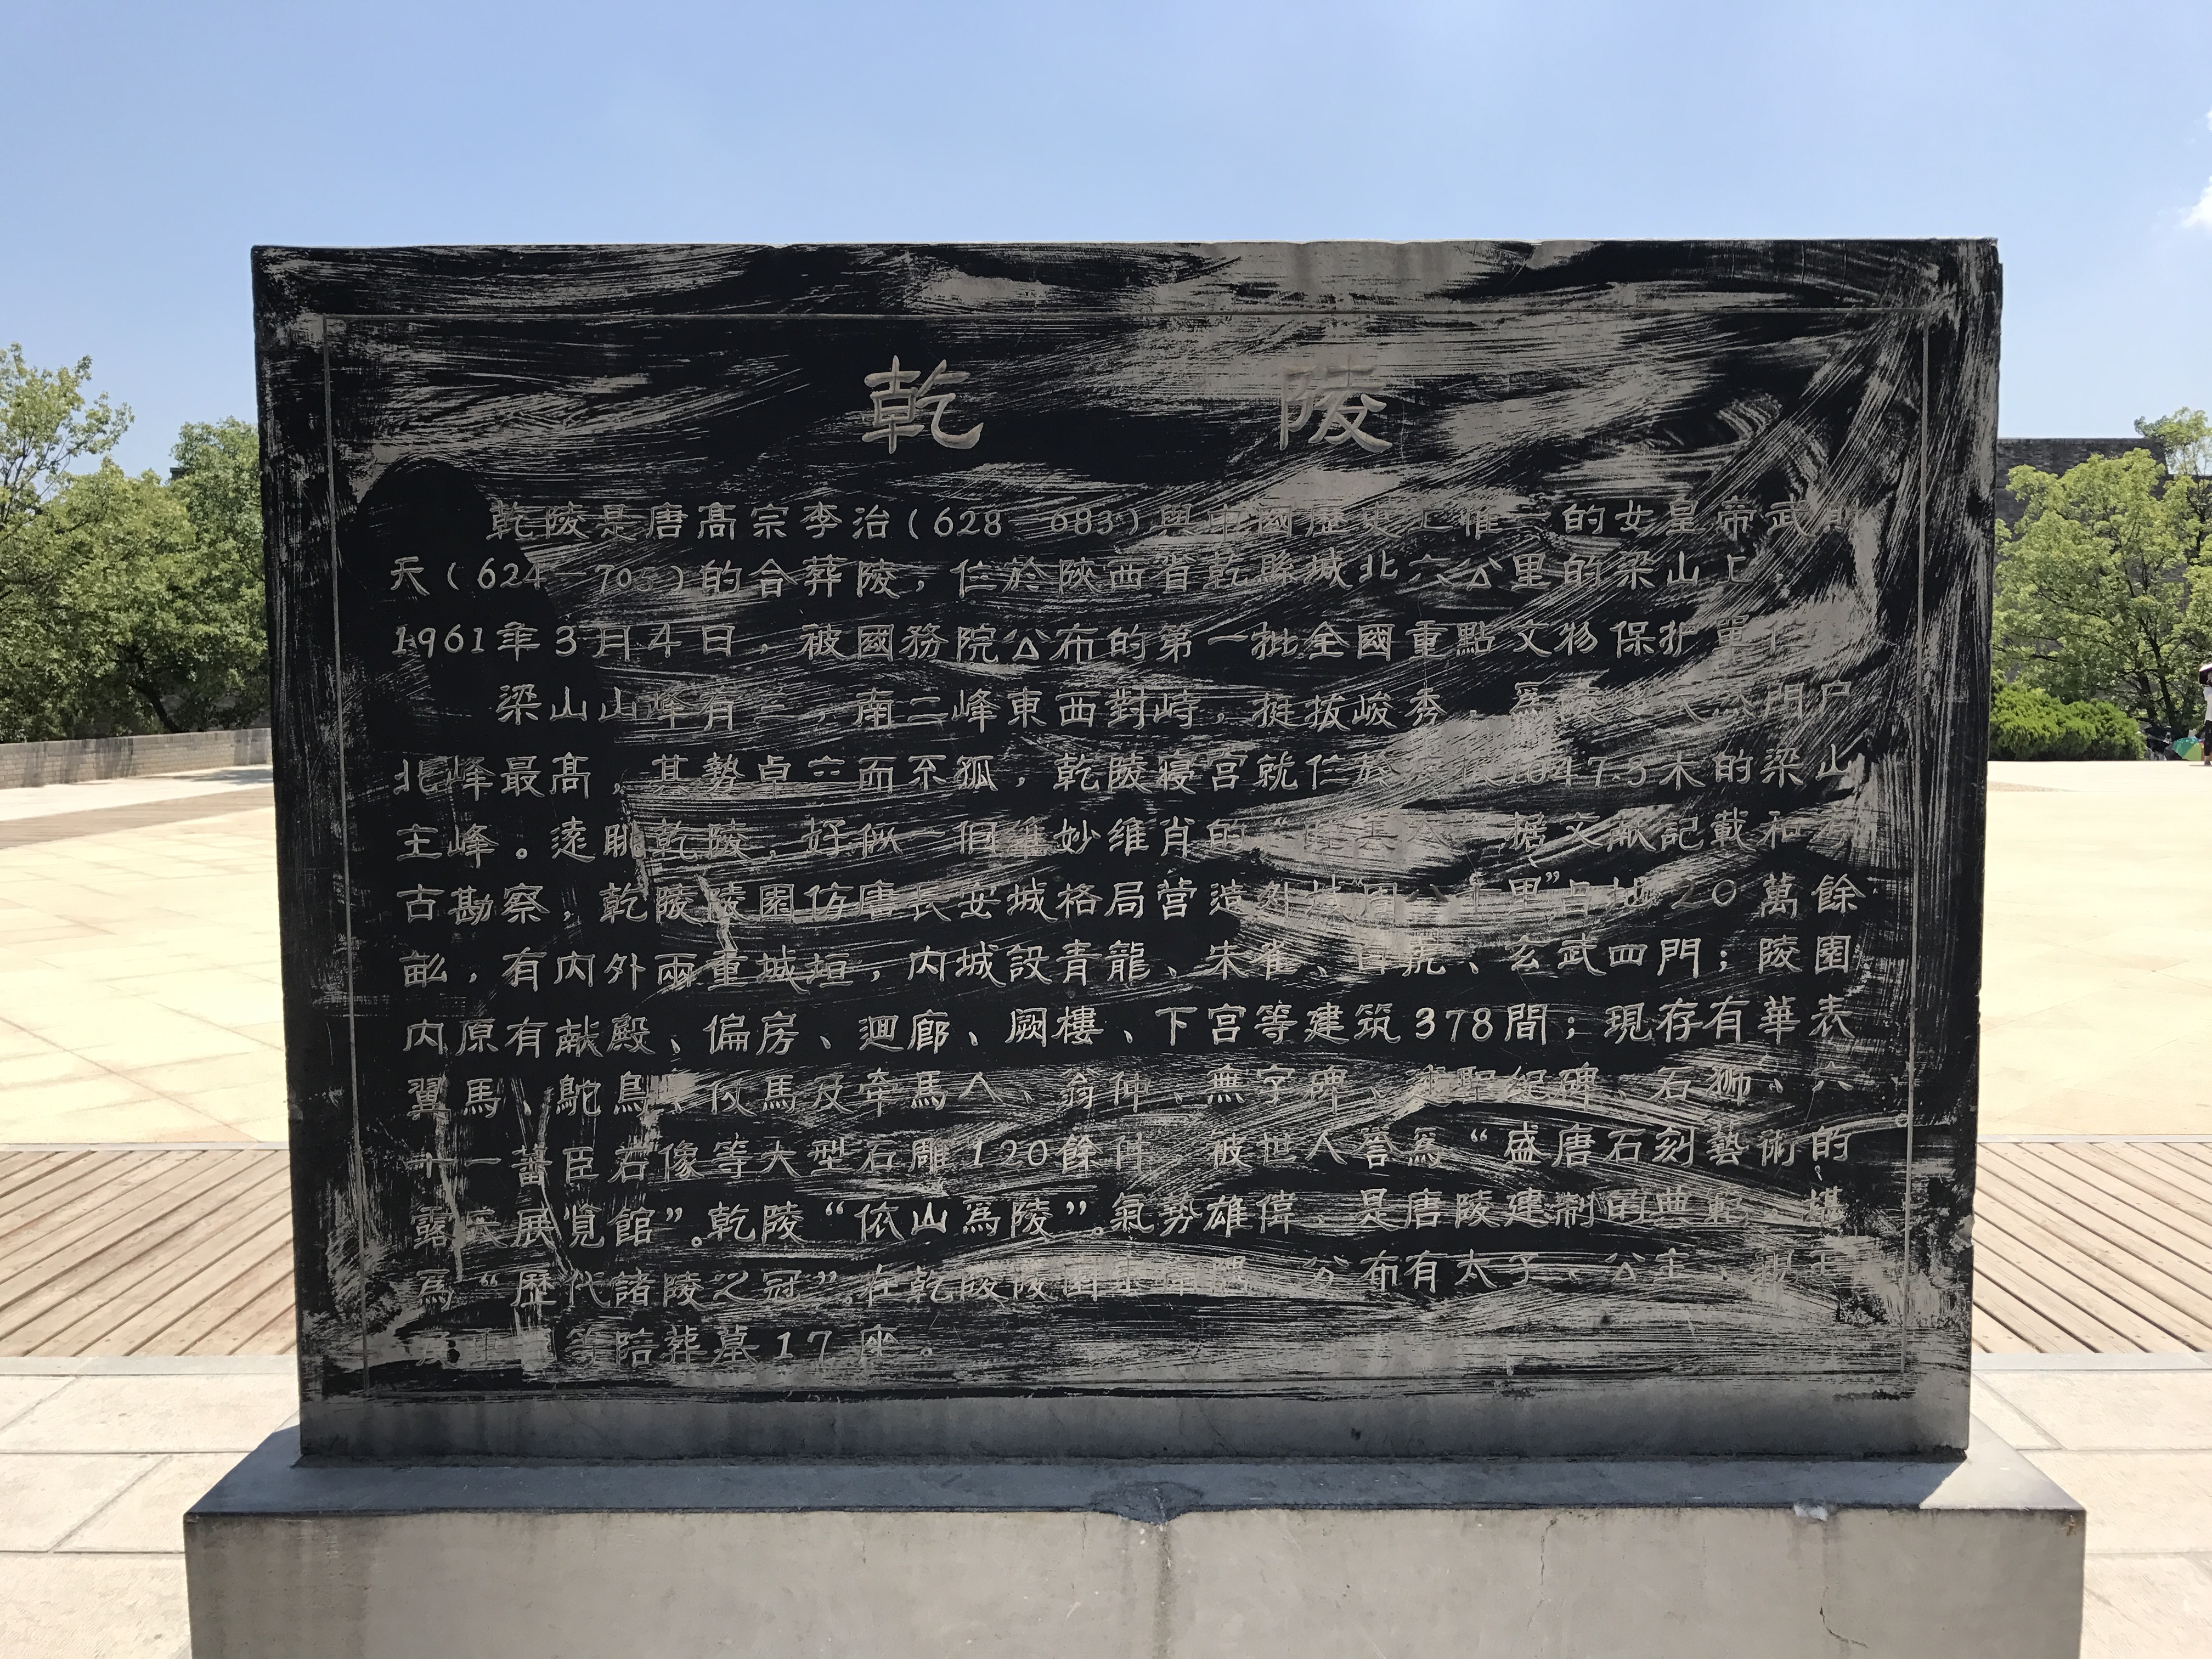 乾 陵
乾陵是唐高宗李治(628—683)與中國歷史上惟一的女皇帝武則
天(624—705)的合葬陵,位於陝西省乾縣城北六公里的梁山上,
1961年3月4日,被國務院公布的第一批全國重點文物保护單位
梁山山峰有三,南二峰東西對峙,挺拔峻秀,爲 天然門户
北峰最高,其勢卓立而不孤,乾陵寝宫就位於 1047.3米的梁山
主峰。遠眺乾陵,好似一個維妙维肖的“ 据文献記載和考
古勘察,乾陵陵園仿唐長安城格局营造外城周八十里”占地20萬餘
畝,有内外兩重城垣,内城設青龍、朱雀、白虎、玄武四門;陵園
内原有献殿、偏房、迴廊、厥樓、下宫等建筑378間;現存有華表
翼馬、鴕鳥、仪馬及牵馬人、翁仲、無字碑、述聖紀碑、石狮、六
十一蕃臣石像等大型石雕120餘件,被世人誉爲“盛唐石刻藝術的
露天展览館”。乾陵“依山爲陵”。氣势雄偉,是唐陵建制的典範,堪
爲“歷代諸陵之冠”。在乾陵陵園東南隅,分布有太子、公主、
等陪葬墓17座。